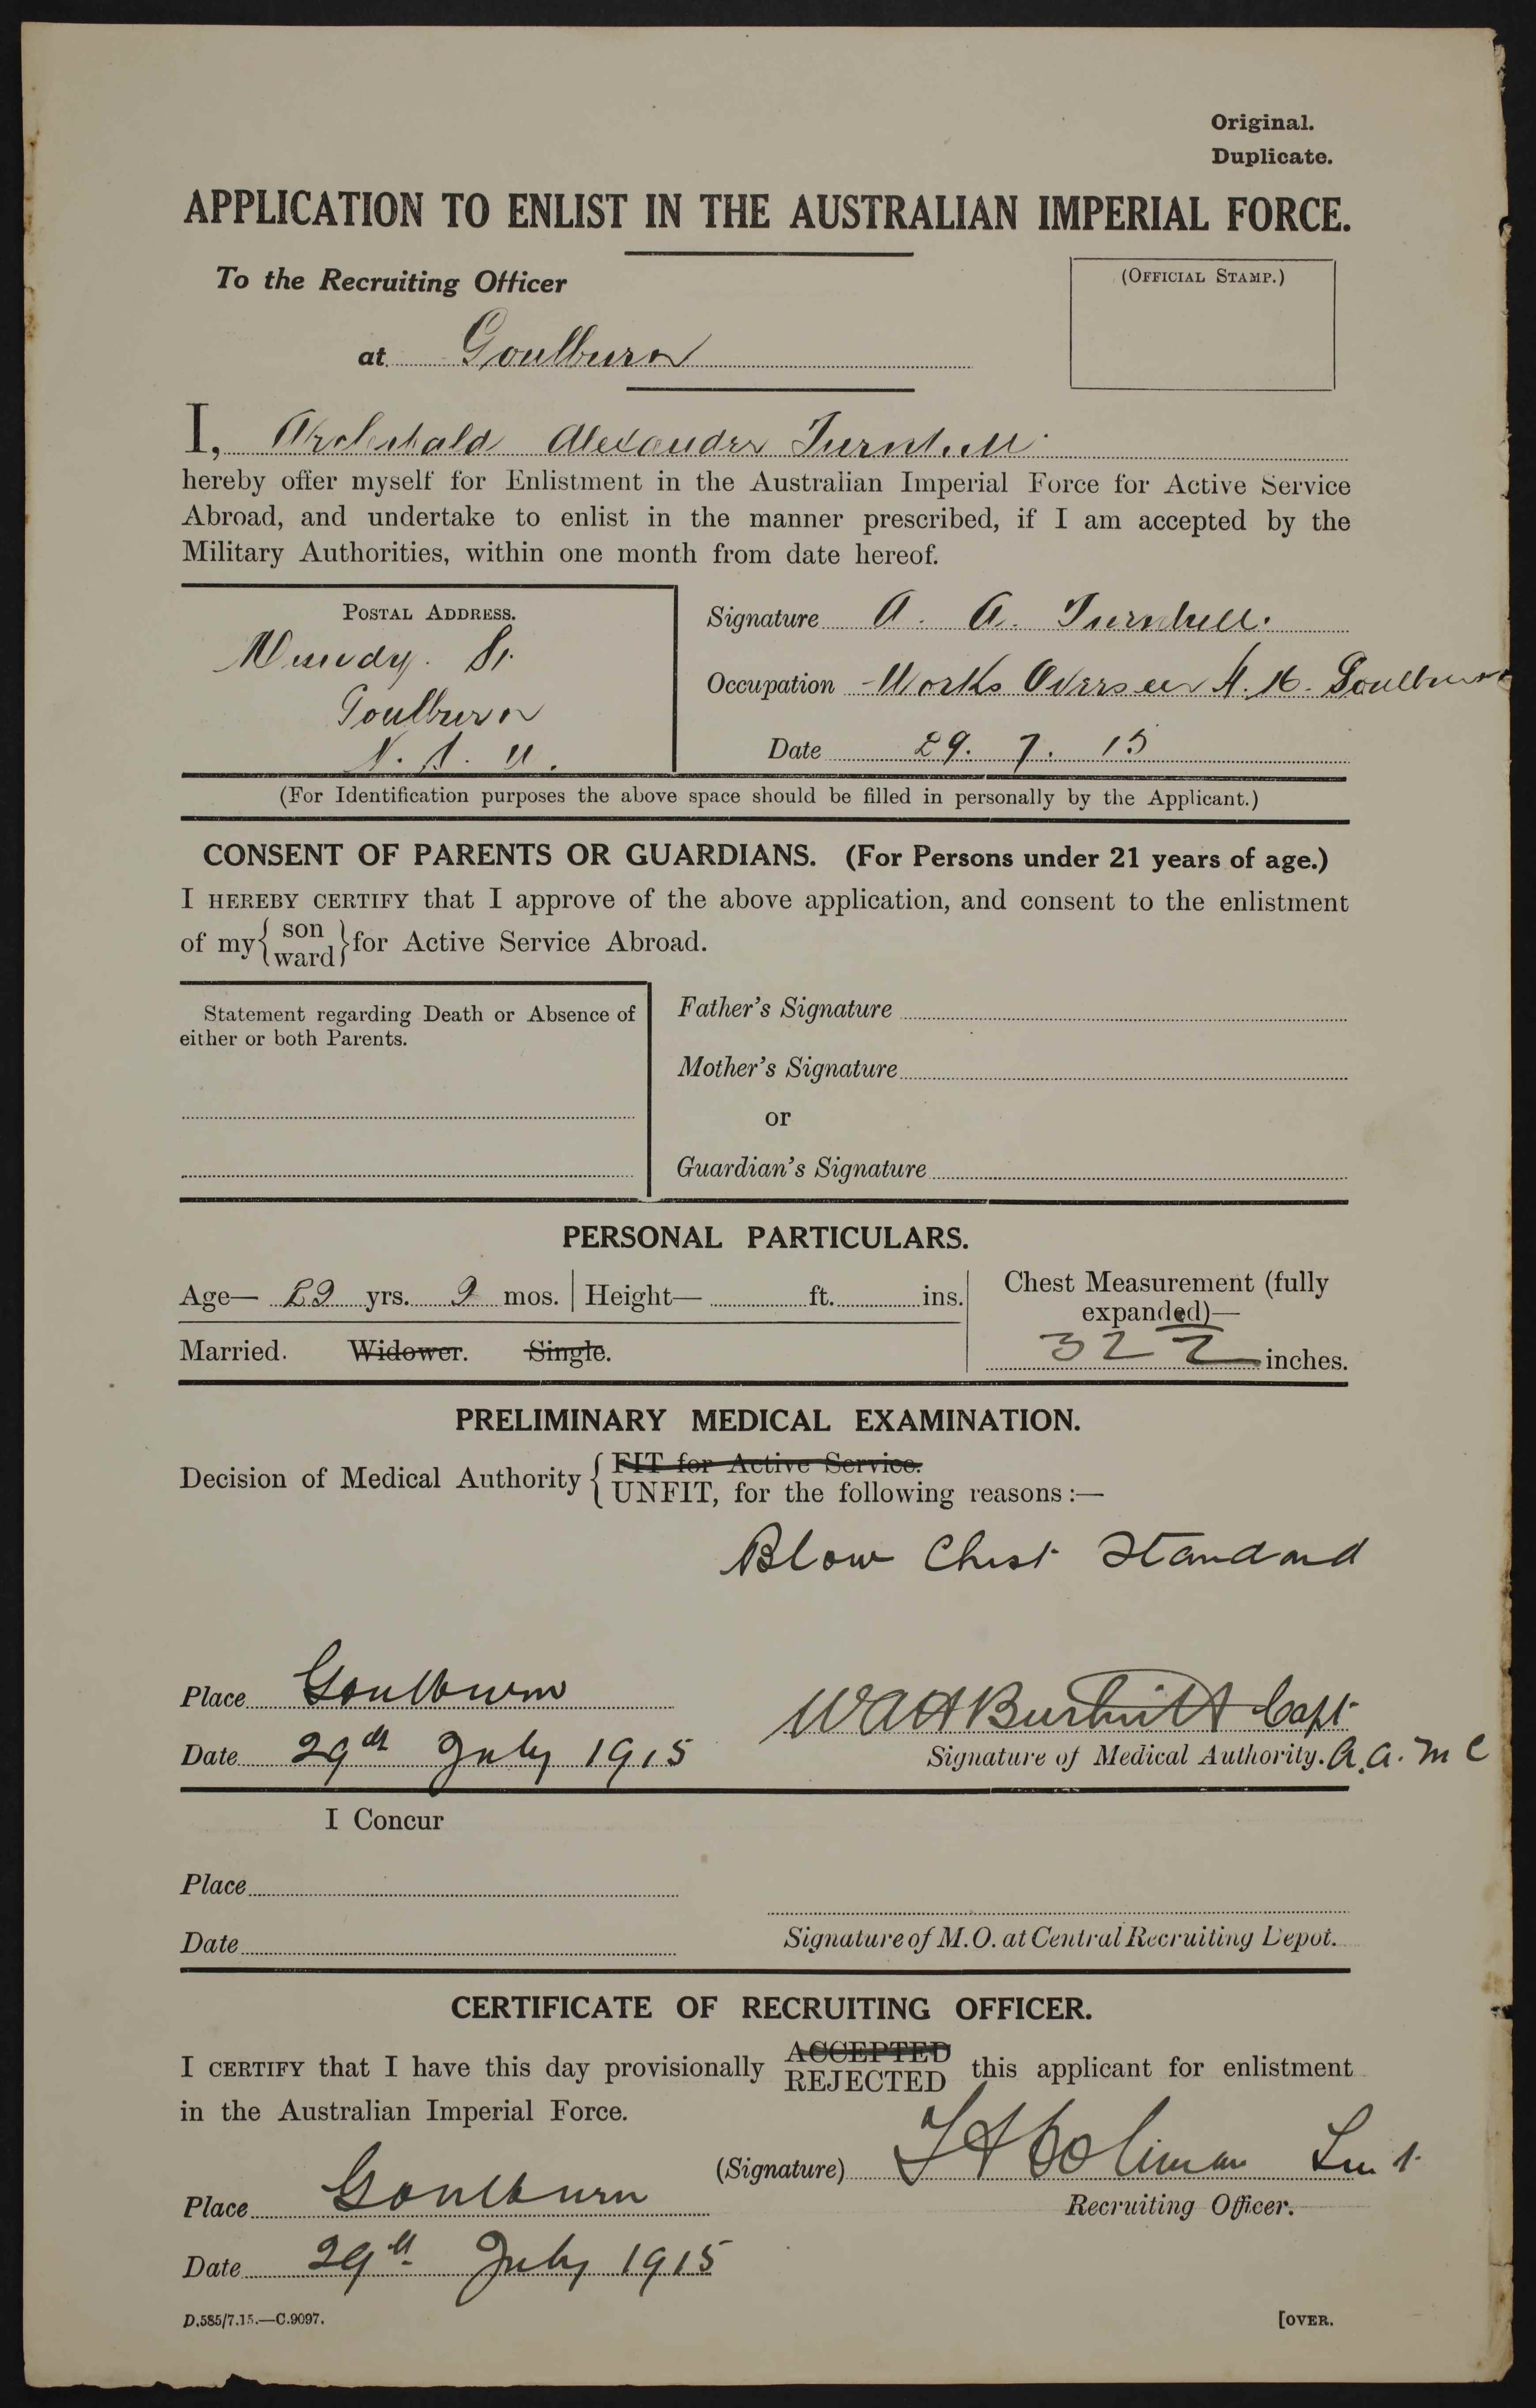 Original.
Duplicate.
APPLICATION TO ENLIST IN THE AUSTRALIAN IMPERIAL FORCE.
To the Recruiting Officer
(OFFICIAL STAMP.)
at Goulburn
I, Archibald Alexander Turnbull
hereby offer myself for Enlistment in the Australian Imperial Force for Active Service
Abroad, and undertake to enlist in the manner prescribed, if I am accepted by the
Military Authorities, within one month from date hereof.
POSTAL ADDRESS.
Mundy St.
Goulburn
N. S. W.
Signature A. A. Turnbull.
Occupation Works Overseer Goulburn
Date 29. 7. 15
(For Identification purposes the above space should be filled in personally by the Applicant.)
CONSENT OF PARENTS OR GUARDIANS. (For Persons under 21 years of age.)
I HEREBY CERTIFY that I approve of the above application, and consent to the enlistment
of my { son ward } for Active Service Abroad.
Statement regarding Death or Absence of
either or both Parents.
Father's Signature
Mother's Signature
or
Guardian's Signature
PERSONAL PARTICULARS.
Age— 29 yrs. 9 mos. Height— ft. ins.
Married. Widower. Single.
Chest Measurement (fully
expanded)—
32 inches.
PRELIMINARY MEDICAL EXAMINATION.
Decision of Medical Authority { FIT for Active Service.
UNFIT, for the following reasons :—
Blow Chest Standard
Place Goulburn
Date 29th July 1915
Capt
Signature of Medical Authority. A.A.M C
I Concur
Place
Date
Signature of M.O. at Central Recruiting Depot.
CERTIFICATE OF RECRUITING OFFICER.
I CERTIFY that I have this day provisionally ACCEPTED REJECTED this applicant for enlistment
in the Australian Imperial Force.
(Signature)
Recruiting Officer.
Place Goulburn
Date 29th July 1915
D.585/7.15.—C.9097.
[OVER.